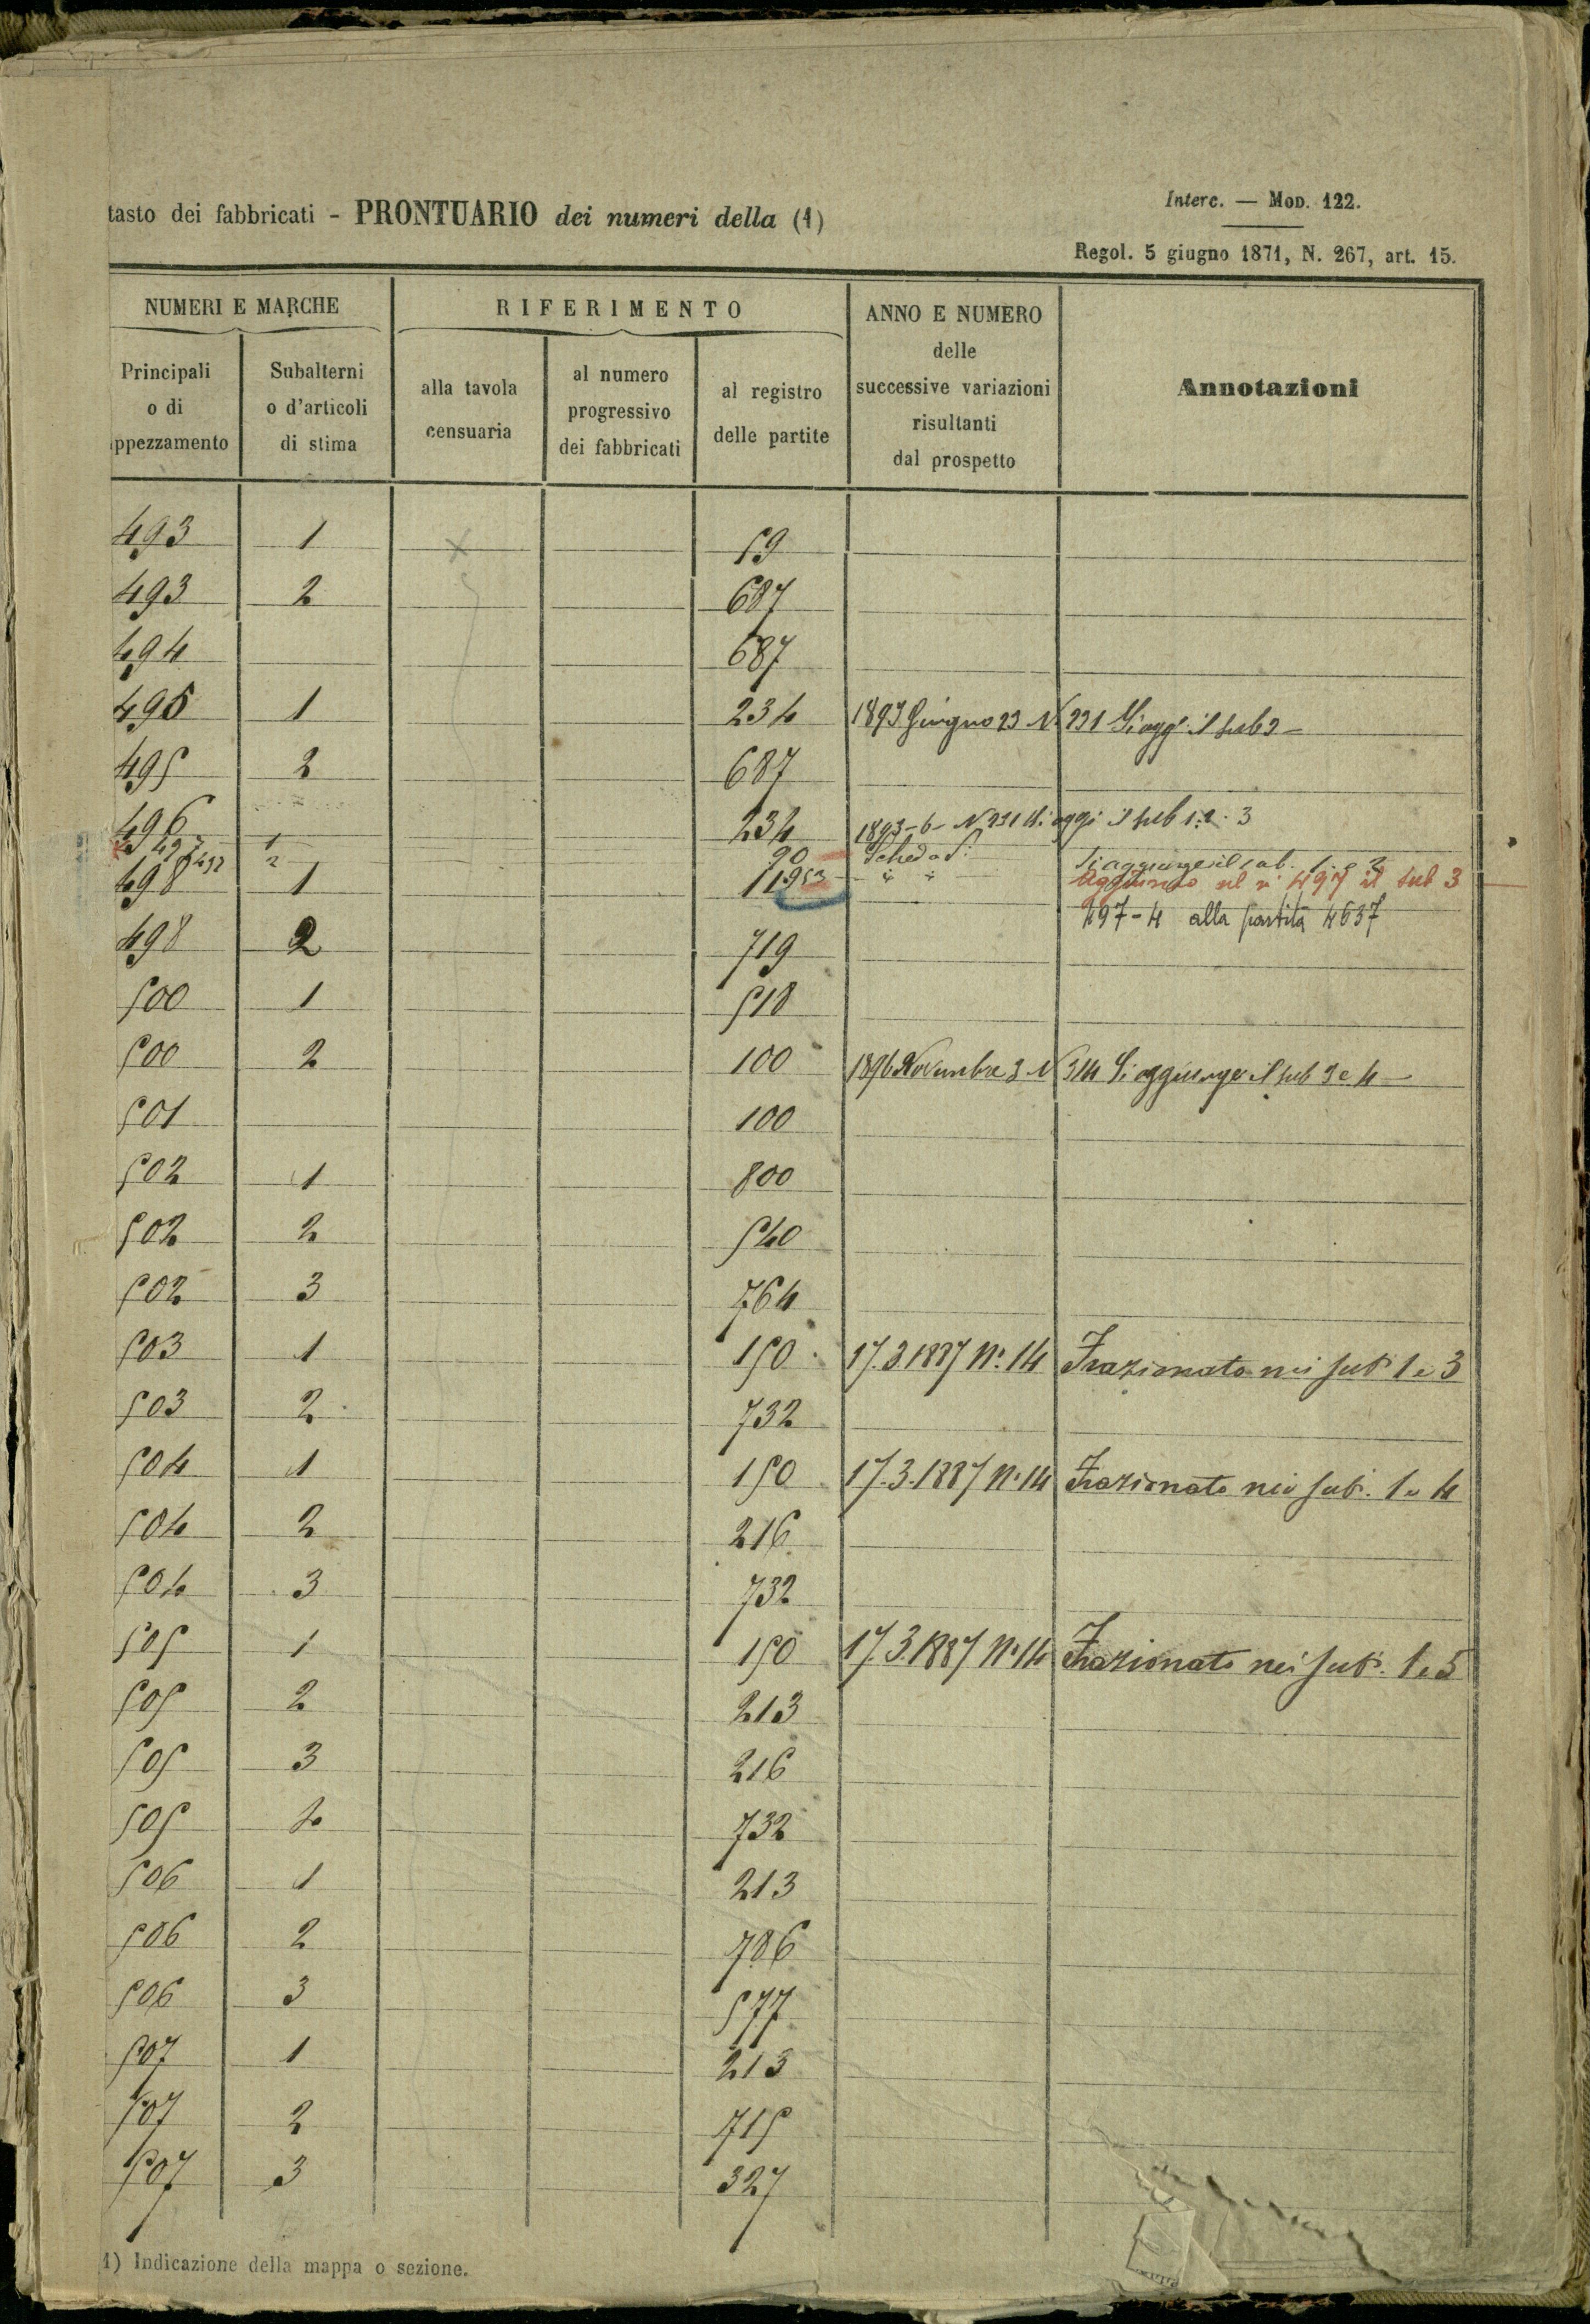 tasto dei fabbricati - PRONTUARIO dei numeri della (1)
Interc. — MOD. 122.
Regol. 5 giugno 1871, N. 267, art. 15.
NUMERI E MARCHE
RIFERIMENTO
ANNO E NUMERO
delle
successive variazioni
risultanti
dal prospetto
Annotazioni
Principali
o di
ppezzamento
Subalterni
o d'articoli
di stima
alla tavola
censuaria
al numero
progressivo
dei fabbricati
al registro
delle partite
493 1 59
493 2 687
494 687
495 1 234 1893 Giugno 23 N. 231 Si agg. il sub 3
495 2 687
496 234 1893-6- N 231 Si aggi il sub 1. 2. 3
497 1 90 Scheda Si aggiunge il sub. 1 e 2
497 2 953 " " Aggiunto al n. 497 il sub 3
498 1 11
497-4 alla partita 4637
498 2 719
500 1 518
500 2 100 1896 Novembre 3 N 314 Si aggiunge il sub 3 e 4
501 100
502 1 800
502 2 540
502 3 764
503 1 150 17.3.1887 N. 14 Frazionato nei sub. 1 e 3
503 2 732
504 1 150 17.3.1887 N. 14 Frazionato nei sub. 1 e 4
504 2 216
504 3 732
505 1 150 17.3.1887 N. 14 Frazionato nei sub. 1 e 5
505 2 213
505 3 216
505 4 732
506 1 213
506 2 786
506 3 577
507 1 213
507 2 715
507 3 327
1) Indicazione della mappa o sezione.